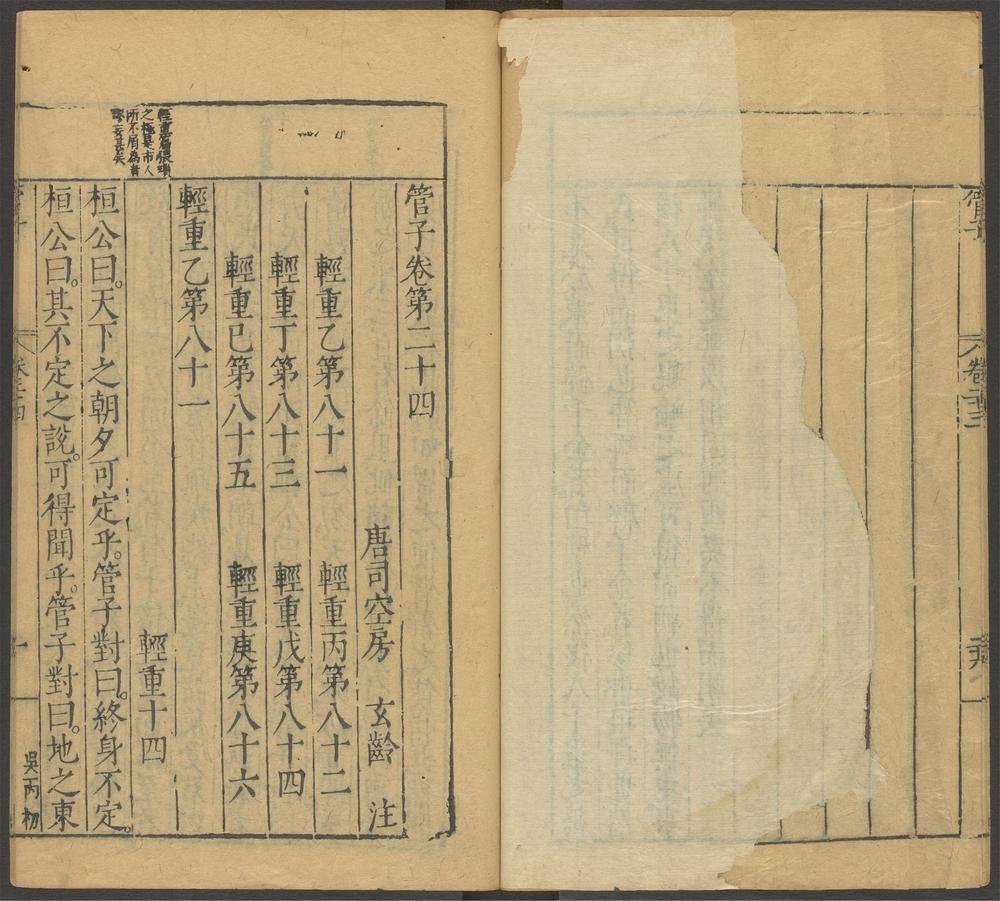 管子
卷二十三
管子卷第二十四
唐司空房 玄齡 注
輕重乙第八十一 輕重丙第八十二
輕重丁第八十三 輕重戊第八十四
輕重己第八十五 輕重庚第八十六
輕重乙第八十一
輕重十四
桓公曰。天下之朝夕可定乎。管子對曰。終身不定。
桓公曰。其不定之說。可得聞乎。管子對曰。地之東
輕重篇
之極是市人
所不屑為者
謬妄甚矣
卷二十四
一
吳丙初